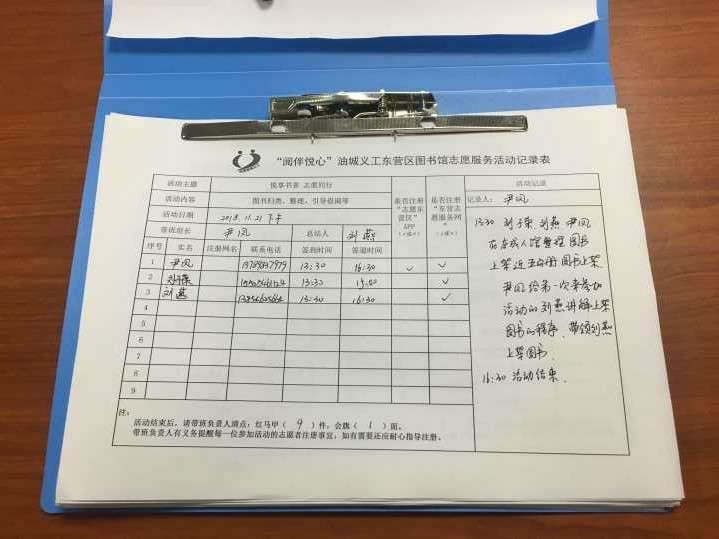 "阅伴悦心"油城义工东营区图书馆志愿服务活动记录表
活动主题 悦享书香 志愿同行
活动内容 图书归类、整理、引导借阅等
活动日期 2018.11.21 下午
签班组长 尹凤 总结人 刘燕
序号 实名 注册网名 联系电话 签到时间 签退时间
是否注册"志愿东营区"APP
是否注册"东营志愿服务网"
1 尹凤 13:30 16:30 ✓ ✓
2 13:30 ✓
3 刘燕 13:30 16:30 ✓
4
5
6
7
8
9
活动记录
记录人: 尹凤
13:30 刘子荣 刘燕 尹凤
在成人馆整理图书
上架近 图书上架
尹凤给第一次来参加
活动的刘燕讲解上架
图书的程序、带领刘燕
上架图书.
16:30 活动结束.
注:
活动结束后,请带班负责人清点:红马甲( 9 )件,会旗( 1 )面。
带班负责人有义务提醒每一位参加活动的志愿者注册事宜,如有需要还应耐心指导注册。